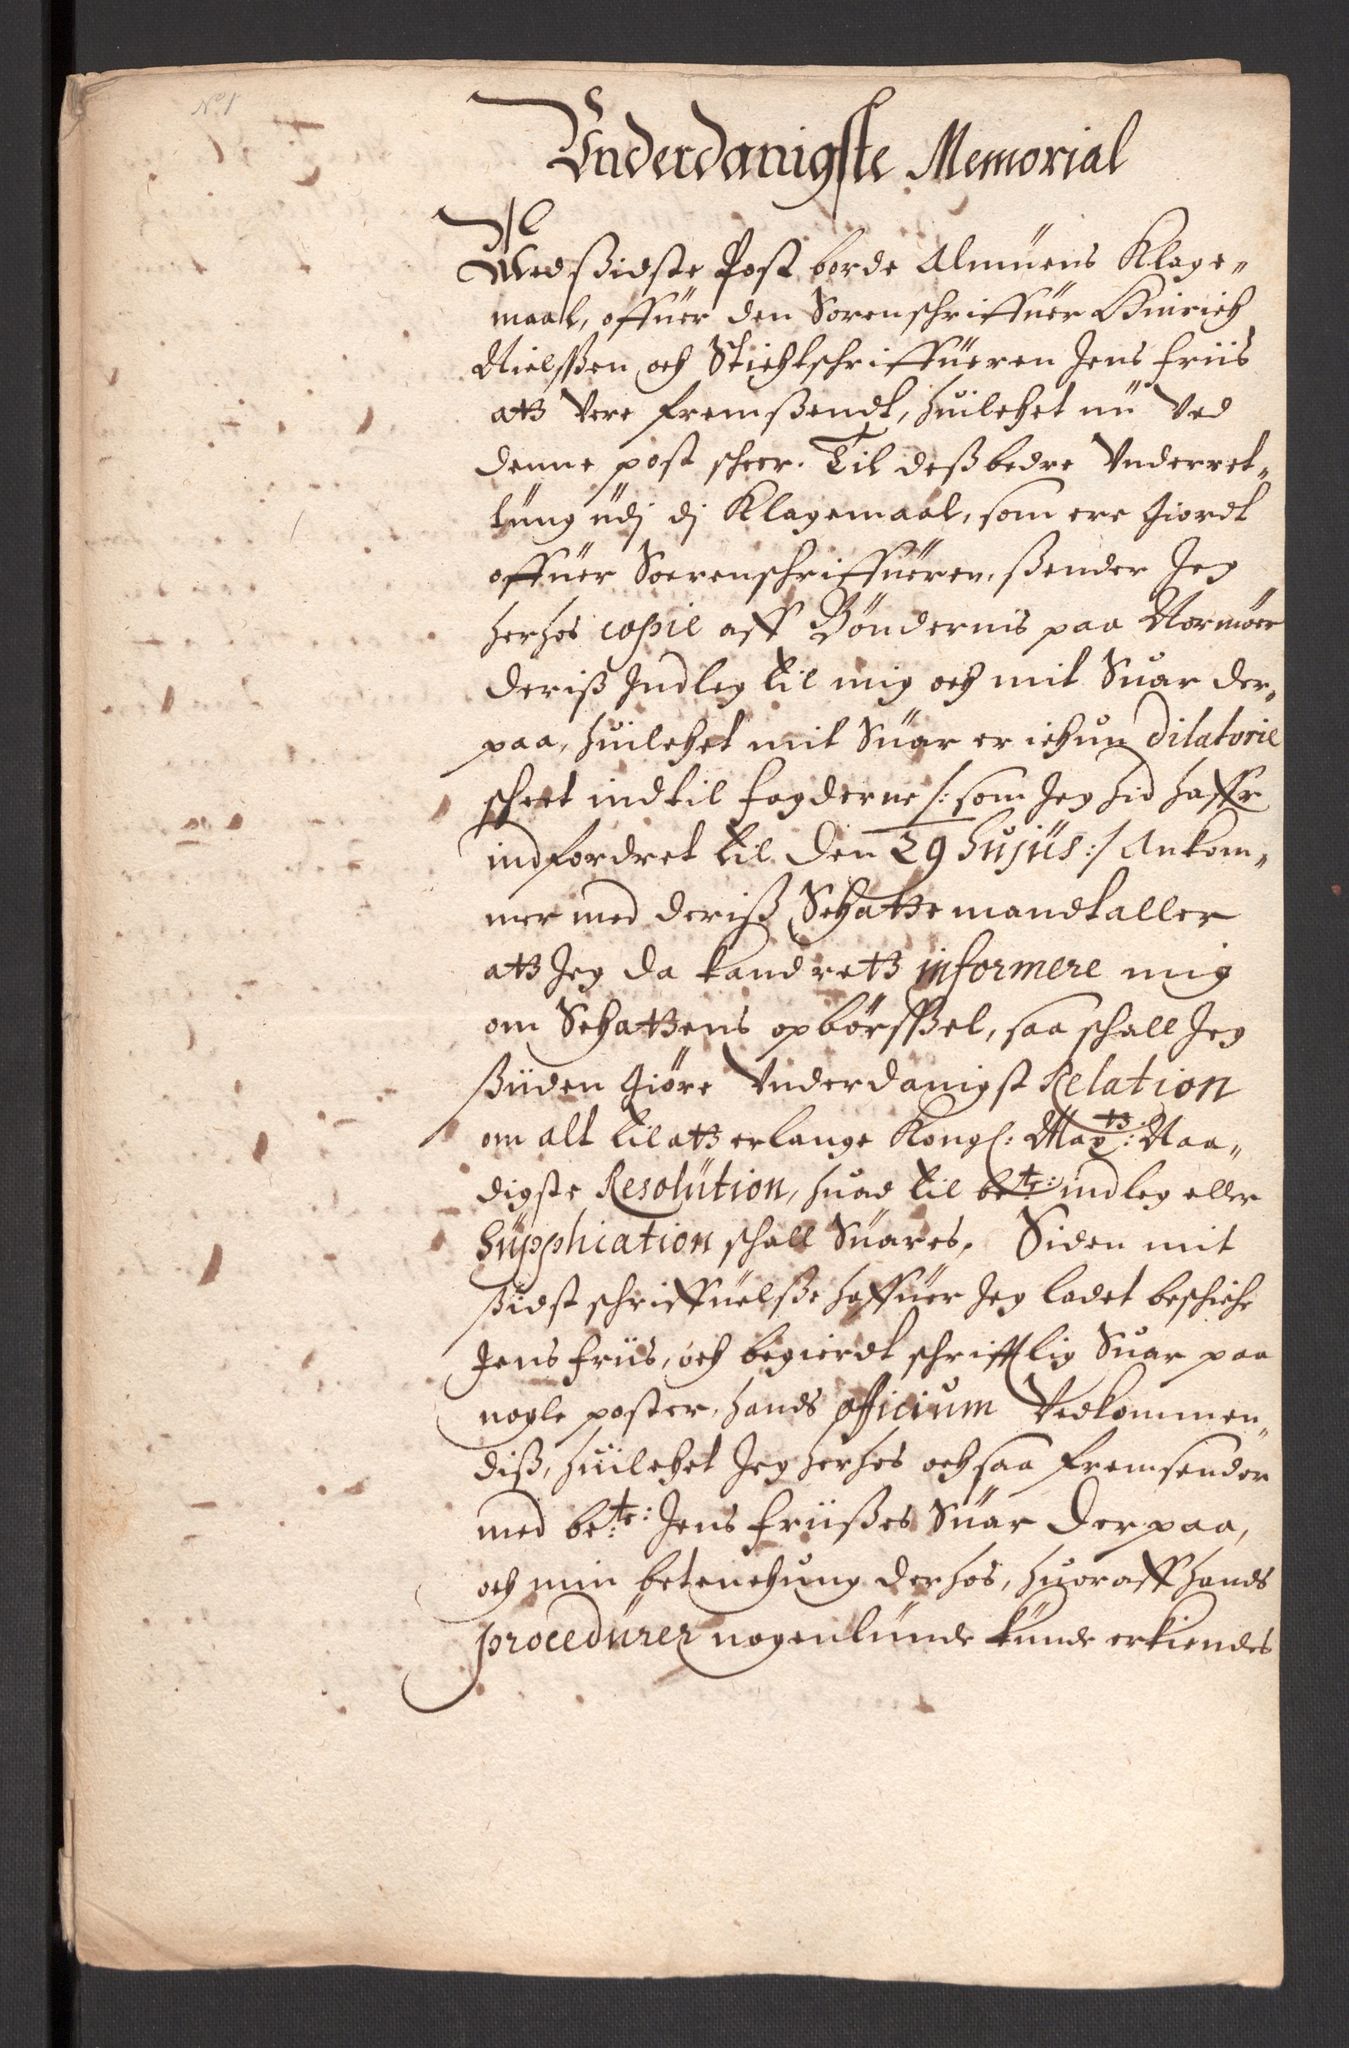 No 1
Vnderdanigste Memorial
Med ßidste Post borde Almüens Klage-
maal, offuer den Sorenschriffuer Hinrich
Nielsßen och Stichtschriffueren Jens Friis
att vere fremßendt, huilchet nu ved
denne post scheer. Til deß bedre Vnderret-
tüng udj dj Klagemaal, som ere giordt
offuer Soerenschriffueren, ßender Jeg
herhos copie aff Böndernis paa Normöer
deriß Indleg til mig och mit Suar der-
paa, huilchet mit Suar er ichun dilatorie
scheet indtil fogderne /: som Jeg hid haffr
indfordret til den 29 hujus :/ Ankom-
mer med deriß Schatte mandtaller
att Jeg da kand rett informere mig
om Schattens opbörsßel, saa schall Jeg
ßiden giöre Vnderdanigst Relation
om alt til att erlange Kongl: Maytz: Naa-
digste Resolution, huad til bete: indleg eller
Supplication schall Suares. Siden mit
ßidst schriffuelße haffuer Jeg ladet beschiche
Jens Friis, och begierdt schrifftlig Suar paa
nogle poster, hands officium Vedkommen-
diß, huilchet Jeg herhos ochsaa fremsender
med bete: Jens Friißes Suar derpaa,
och min betenchung derhos, huoraff hands
procedurer nogenlunde kunde erkiendes